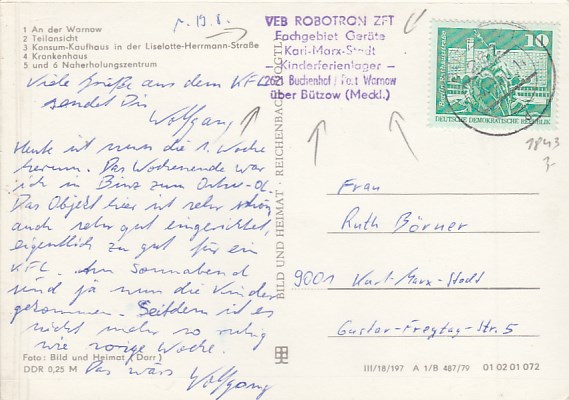 1 An der Warnow
2 Teilansicht
3 Konsum-Kaufhaus in der Liselotte-Herrmann-Straße
4 Krankenhaus
5 und 6 Naherholungszentrum
VEB ROBOTRON ZFT
Fachgebiet Geräte
Karl-Marx-Stadt
- Kinderferienlager -
2621 Buchenhof / Warnow
über Bützow (Meckl.)
10
DEUTSCHE DEMOKRATISCHE REPUBLIK
Viele Grüße aus dem KFL
sendet Dir
Wolfgang
Heute ist nun die 1. Woche
herum. Das Wochenende war
ich in Binz zum
Das Objekt hier ist sehr
auch sehr gut eingerichtet,
eigentlich zu gut für ein
KFL. Am Sonnabend
sind ja nun die Kinder
gekommen. Seitdem ist es
nicht mehr so ruhig
wie vorige Woche.
Das wärs
Wolfgang
Foto: Bild und Heimat (Darr)
DDR 0,25 M
BILD UND HEIMAT · REICHENBACH (VOGTL)
Frau
Ruth Börner
9001 Karl-Marx-Stadt
Gustav-Freytag-Str. 5
III/18/197 A 1/B 487/79 01 02 01 072